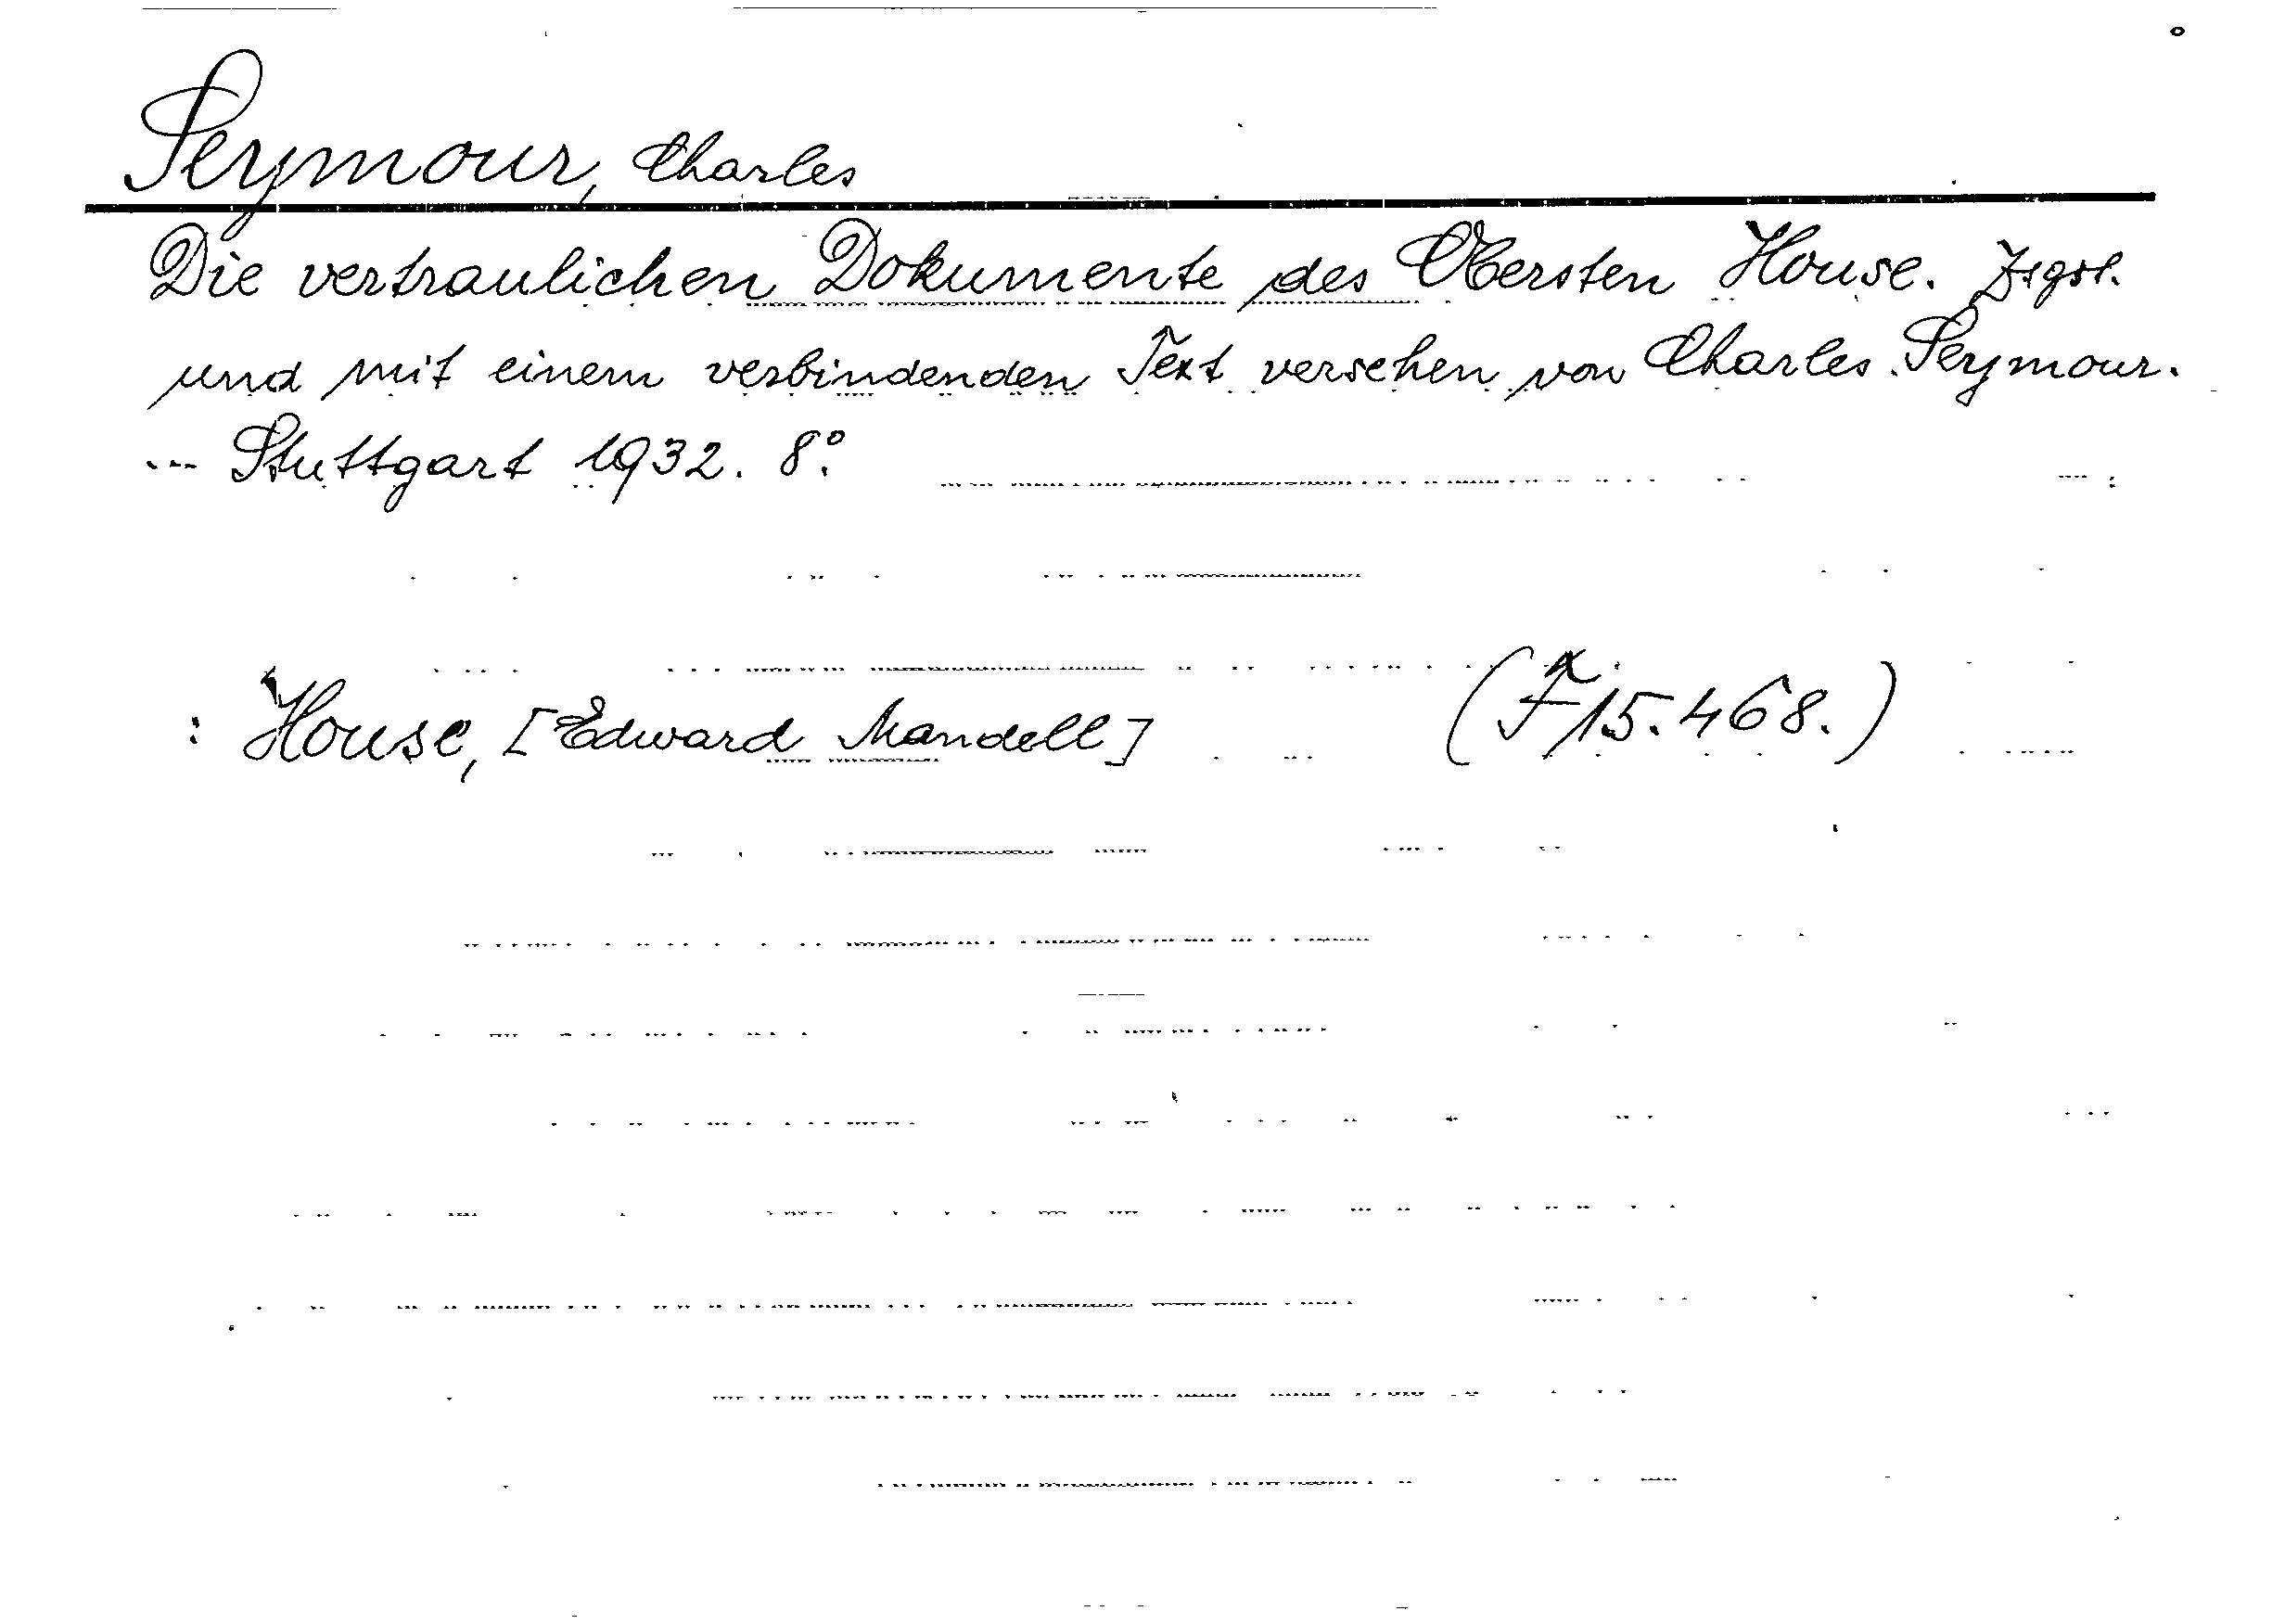 Seymour, Charles
Die vertraulichen Dokumente des Obersten House. Zsgst.
und mit einem verbindenden Text versehen von Charles Seymour.
... Stuttgart 1932. 8°.
: House, [Edward Mandell] (F 15.468.)